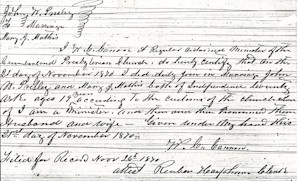 John W. Presley
To } Marriage
Mary J. Mathis
I W. C. Cannon A Regular ordained Minister of the
Cumberland Presbyterian Church do hereby certify that on the
21 day of November 1870 I did duly join in Marriage John
W. Presley and Mary J. Mathis both of Independence County
Ark. ages 19 years according to the customs of the church
of I am a Minister. And then and there pronounced them
Husband and wife. Given under My hand this
21st day of November 1870
W. C. Cannon
Filed for Record Novr 26th 1870
attest Reuben Harpham Clerk